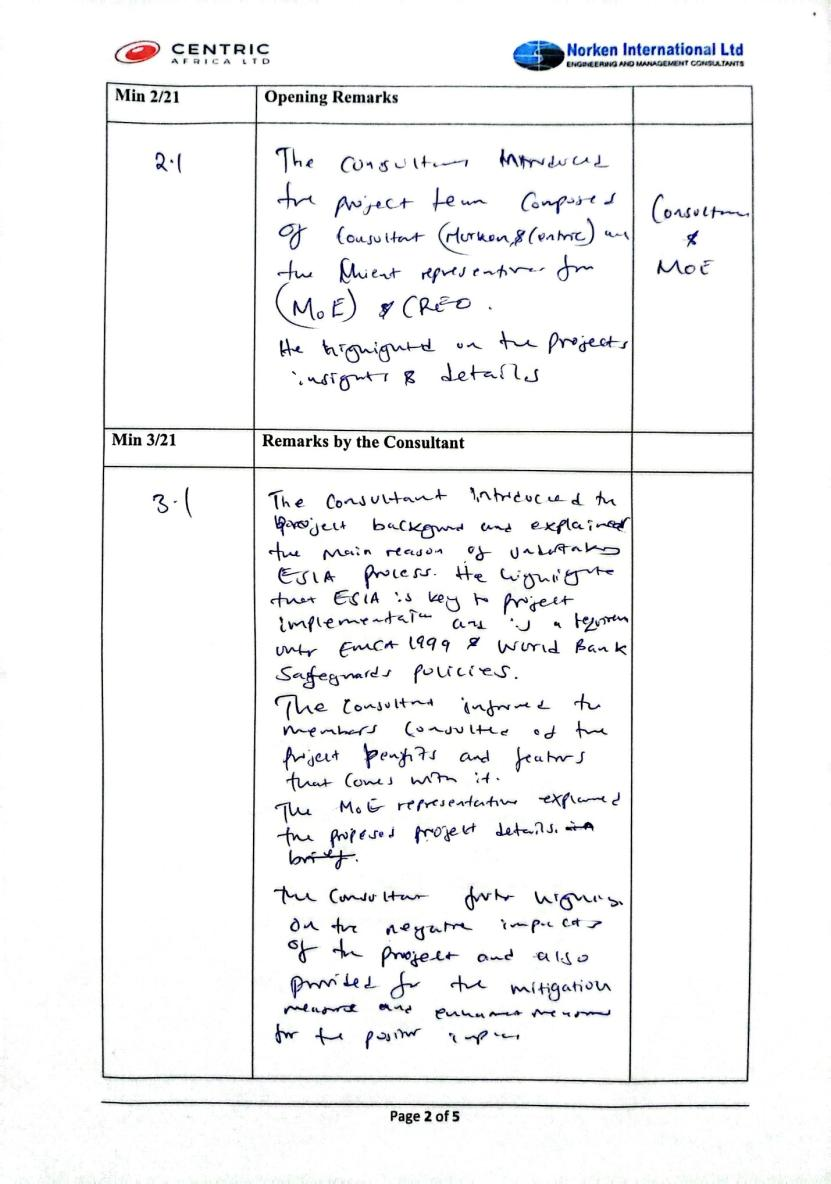 CENTRIC
AFRICA LTD
Norken International Ltd
ENGINEERING AND MANAGEMENT CONSULTANTS
Min 2/21 Opening Remarks
2.1
The Consultant introduced
the project team composed
of Consultant (Norken & Centric) and
the Client representatives from
(MoE) & CREO.
He highlighted on the projects
insights & details
Consultant
&
MOE
Min 3/21 Remarks by the Consultant
3.1
The Consultant introduced the
project background and explained
the main reason of undertaking
ESIA process. He highlighted
that ESIA is key to project
implementation and is a
under EMCA 1999 & World Bank
Safeguards policies.
The Consultant informed the
members consulted of the
project benefits and features
that comes with it.
The MoE representative explained
the proposed project details. in
brief.
The Consultant further
on the negative impacts
of the project and also
provided for the mitigation
measure and measures
for the positive impacts
Page 2 of 5